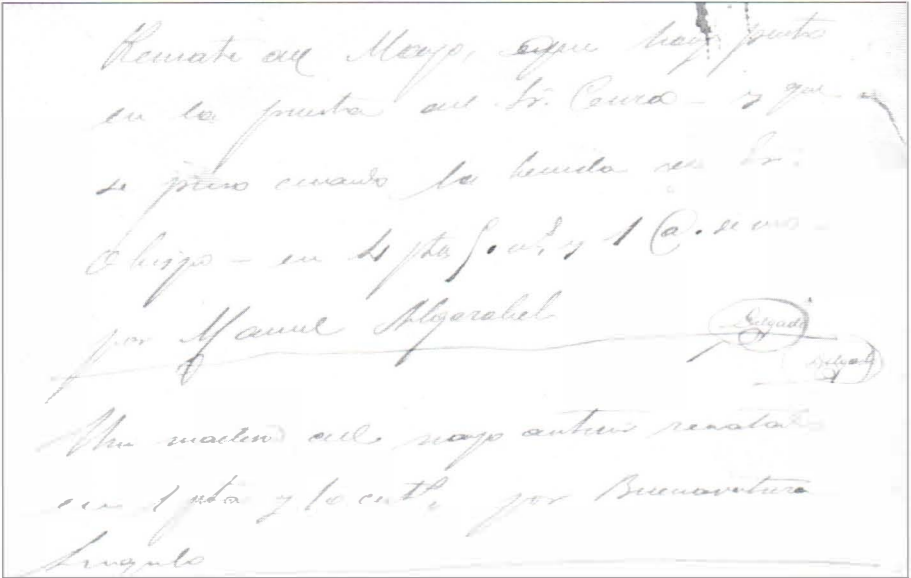 Remate del Mayo, que hay puesto
en la puerta del Sr. Cura - y que
se puso cuando la benida del Sr.
Obispo - en 4 pta y 1 @. de vino
por Manuel Algarabel
Delgado
Delgado
Un madero del mayo anterior rematado
en 1 pta y 10 cent. por Buenaventura
Angulo